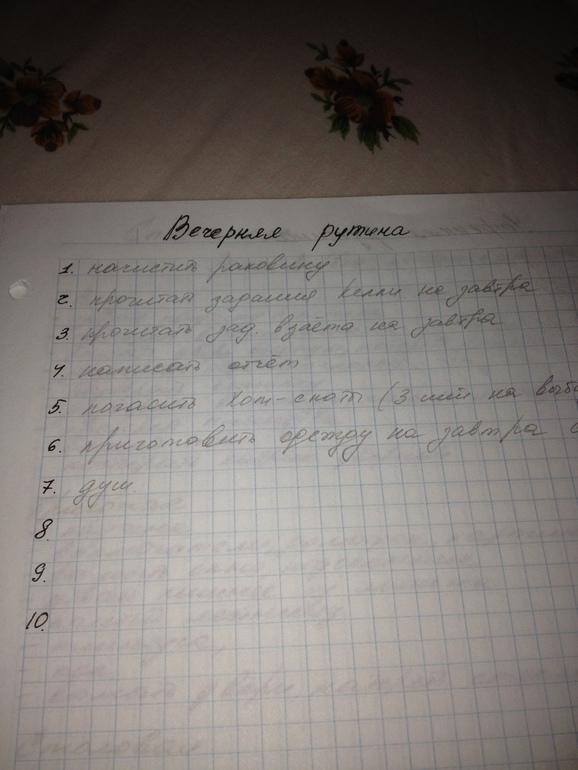 Вечерняя рутина
1. начистить раковину
2. прочитать задания Келли на завтра
3. прочитать зад. взлёта на завтра
4. написать отчёт
5. погасить хот-споты (3 шт на
6. приготовить одежду на завтра
7. душ
8.
9.
10.